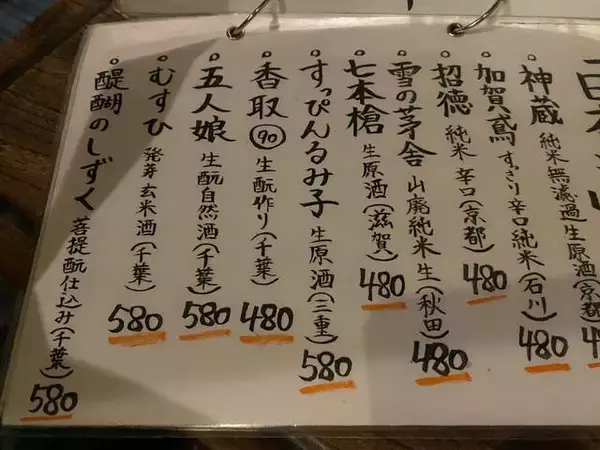 神蔵 純米無濾過生原酒(京都
加賀鳶 すっきり辛口純米(石川) 480
招徳 純米 辛口(京都) 480
雪の茅舎 山廃純米生(秋田) 480
七本槍 生原酒(滋賀) 480
すっぴんるみ子 生原酒(三重) 580
香取 90 生酛作り(千葉) 480
五人娘 生酛自然酒(千葉) 580
むすひ 発芽玄米酒(千葉) 580
醍醐のしずく 菩提酛仕込み(千葉) 580